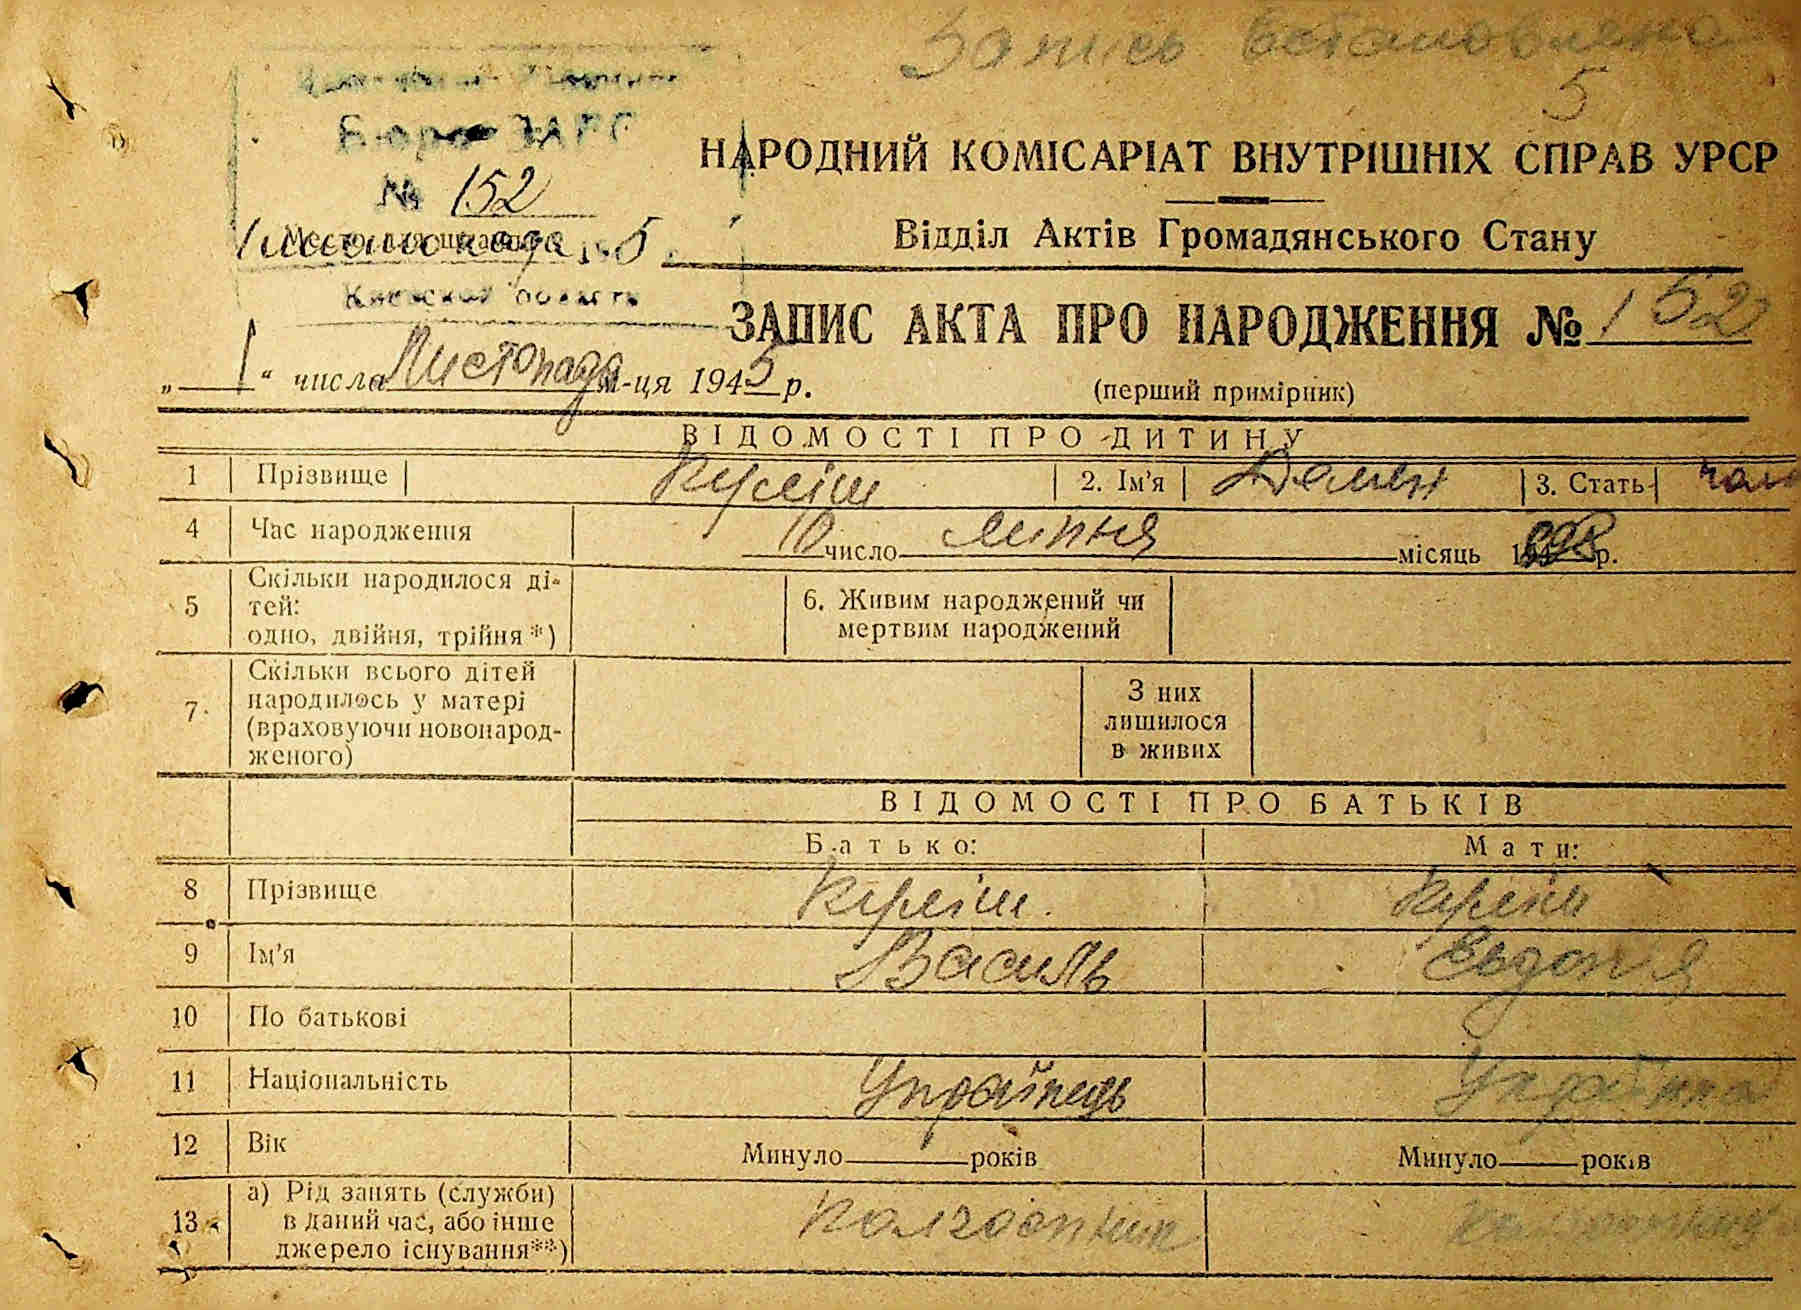 Запись встановлена
5
Бюро ЗАГС
№ 152
листопада 5
Киевской области
НАРОДНИЙ КОМІСАРІАТ ВНУТРІШНІХ СПРАВ УРСР
Відділ Актів Громадянського Стану
ЗАПИС АКТА ПРО НАРОДЖЕННЯ № 152
„1“ числа Листопада м-ця 1945 р.
(перший примірник)
ВІДОМОСТІ ПРО ДИТИНУ
1 Прізвище Куліш 2. Ім'я Демен 3. Стать чол
4 Час народження 10 число липня місяць р.
5 Скільки народилося ді-
тей:
одно, двійня, трійня *)
6. Живим народжений чи
мертвим народжений
7 Скільки всього дітей
народилось у матері
(враховуючи новонарод-
женого)
З них
лишилося
в живих
ВІДОМОСТІ ПРО БАТЬКІВ
Батько: Мати:
8 Прізвище Куліш Куліш
9 Ім'я Василь Євдокія
10 По батькові
11 Національність Українець Українка
12 Вік Минуло років Минуло років
13 а) Рід занять (служби)
в даний час, або інше
джерело існування**)
Колгоспник